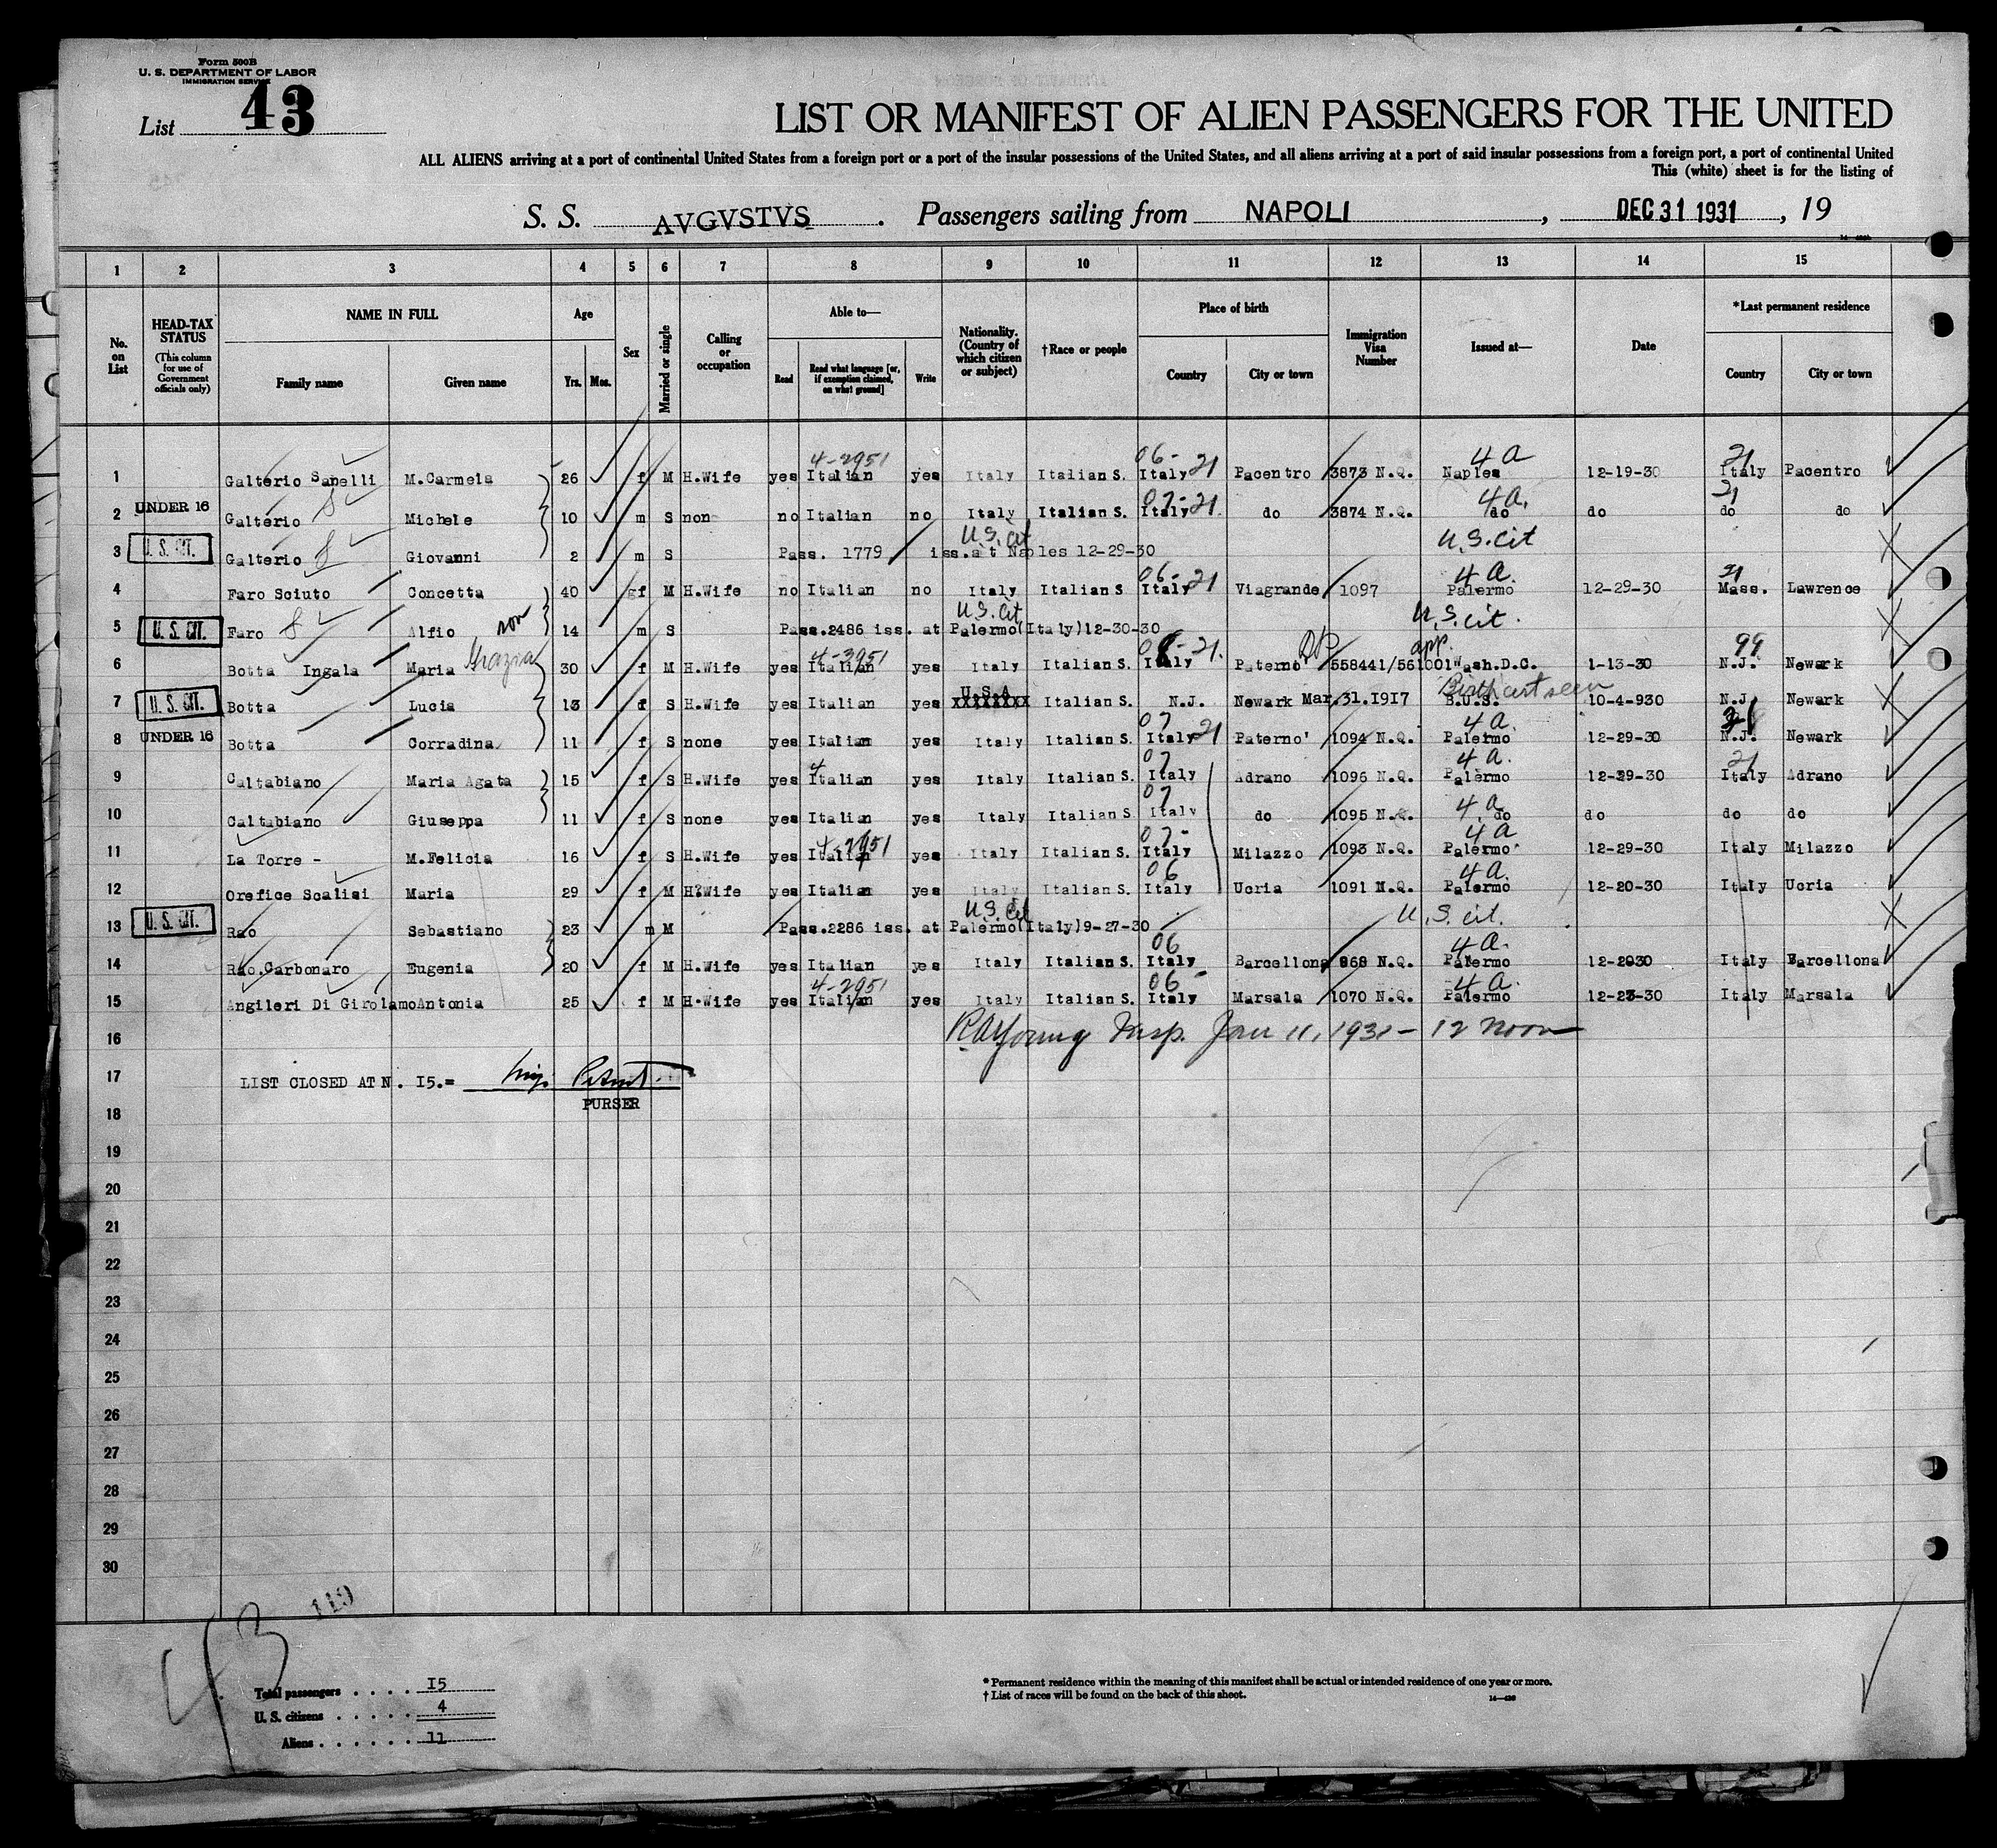 Form 500B
U. S. DEPARTMENT OF LABOR
IMMIGRATION SERVICE
List 43
LIST OR MANIFEST OF ALIEN PASSENGERS FOR THE UNITED
ALL ALIENS arriving at a port of continental United States from a foreign port or a port of the insular possessions of the United States, and all aliens arriving at a port of said insular possessions from a foreign port, a port of continental United
This (white) sheet is for the listing of
S. S. AVGVSTVS . Passengers sailing from NAPOLI , DEC 31 1931 , 19
1 2 3 4 5 6 7 8 9 10 11 12 13 14 15
No. on List
HEAD-TAX STATUS (This column for use of Government officials only)
NAME IN FULL
Family name Given name
Age
Yrs. Mos.
Sex
Married or single
Calling or occupation
Able to—
Read Read what language [or, if exemption claimed, on what ground] Write
Nationality. (Country of which citizen or subject)
†Race or people
Place of birth
Country City or town
Immigration Visa Number
Issued at—
Date
*Last permanent residence
Country City or town
4-2951 06- 4 A 21
1 Galterio Sanelli M.Carmela 26 f M H.Wife yes Italian yes Italy Italian S. Italy 21 Pacentro 3873 N.Q. Naples 12-19-30 Italy Pacentro
UNDER 16 07- 4 A. 21
2 Galterio Michele 10 m S non no Italian no Italy Italian S. Italy 21. do 3874 N.Q. do do do do
U. S. CIT. U.S. Cit U.S. Cit
3 Galterio Giovanni 2 m S Pass. 1779 iss.at Naples 12-29-30
06- 4 A. 21
4 Faro Sciuto Concetta 40 f M H.Wife no Italian no Italy Italian S Italy 21 Viagrande 1097 Palermo 12-29-30 Mass. Lawrence
U. S. CIT. son U.S. Cit U.S. cit.
5 Faro Alfio 14 m S Pass.2486 iss. at Palermo(Italy)12-30-30
Grazia 4-3951 RP app. 99
6 Botta Ingala Maria 30 f M H.Wife yes Italian yes Italy Italian S. Italy 21. Paterno' 558441/561001 Wash.D.C. 1-13-30 N.J. Newark
U. S. CIT. U.S.A. Birth cert seen
7 Botta Lucia 13 f S H.Wife yes Italian yes XXXXXXXX Italian S. N.J. Newark Mar.31.1917 B.U.S. 10-4-930 N.J. Newark
UNDER 16 07 4 A.
8 Botta Corradina 11 f S none yes Italian yes Italy Italian S. Italy 21 Paterno' 1094 N.Q. Palermo 12-29-30 N.J. Newark
4 07 4 A. 21
9 Caltabiano Maria Agata 15 f S H.Wife yes Italian yes Italy Italian S. Italy Adrano 1096 N.Q. Palermo 12-29-30 Italy Adrano
07 4 a
10 Caltabiano Giuseppa 11 f S none yes Italian yes Italy Italian S Italy do 1095 N.Q. do do do do
4-2951 07- 4 A
11 La Torre - M.Felicia 16 f S H.Wife yes Italian yes Italy Italian S. Italy Milazzo 1093 N.Q. Palermo 12-29-30 Italy Milazzo
06 4 A.
12 Orefice Scalisi Maria 29 f M H?Wife yes Italian yes Italy Italian S. Italy Ucria 1091 N.Q. Palermo 12-20-30 Italy Ucria
U. S. CIT. U.S. Cit U.S. cit.
13 Rao Sebastiano 23 m M Pass.2286 iss. at Palermo(Italy)9-27-30
06 4 A.
14 Rao.Carbonaro Eugenia 20 f M H.Wife yes Italian yes Italy Italian S. Italy Barcellona 868 N.Q. Palermo 12-2030 Italy Barcellona
4-2951 06 4 A.
15 Angileri Di Girolamo Antonia 25 f M H.Wife yes Italian yes Italy Italian S. Italy Marsala 1070 N.Q. Palermo 12-23-30 Italy Marsala
16 Young Insp. Jan 11, 1931 - 12 noon
17 LIST CLOSED AT N. I5.=
PURSER
18
19
20
21
22
23
24
25
26
27
28
29
30
43 119
Total passengers . . . . I5
U. S. citizens . . . . . 4
Aliens . . . . . . 11
* Permanent residence within the meaning of this manifest shall be actual or intended residence of one year or more.
† List of races will be found on the back of this sheet.